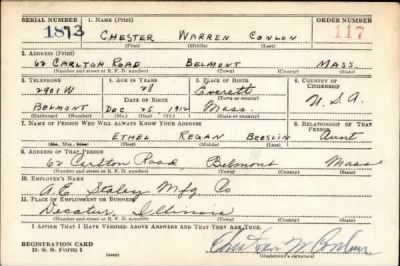 SERIAL NUMBER 1. NAME (Print) ORDER NUMBER
1813 CHESTER WARREN CONLON 117
(First) (Middle) (Last)
2. ADDRESS (Print)
62 CARLTON ROAD BELMONT MASS.
(Number and street or R. F. D. number) (Town) (County) (State)
3. TELEPHONE 4. AGE IN YEARS 5. PLACE OF BIRTH 6. COUNTRY OF CITIZENSHIP
2901W 28 Everett
(Town or county)
DATE OF BIRTH U.S.A.
BELMONT DEC. 25 1912 Mass.
(Exchange) (Number) (Mo.) (Day) (Yr.) (State or country)
7. NAME OF PERSON WHO WILL ALWAYS KNOW YOUR ADDRESS 8. RELATIONSHIP OF THAT PERSON
ETHEL REGAN BRESLIN Aunt
(Mr., Mrs., Miss) (First) (Middle) (Last)
9. ADDRESS OF THAT PERSON
62 Carlton Road, Belmont Mass
(Number and street or R. F. D. number) (Town) (County) (State)
10. EMPLOYER'S NAME
A.E. Staley Mfg Co
11. PLACE OF EMPLOYMENT OR BUSINESS
Decatur Illinois
(Number and street or R. F. D. number) (Town) (County) (State)
I AFFIRM THAT I HAVE VERIFIED ABOVE ANSWERS AND THAT THEY ARE TRUE.
REGISTRATION CARD
D. S. S. Form 1 (over) Chester W Conlon
(Registrant's signature)